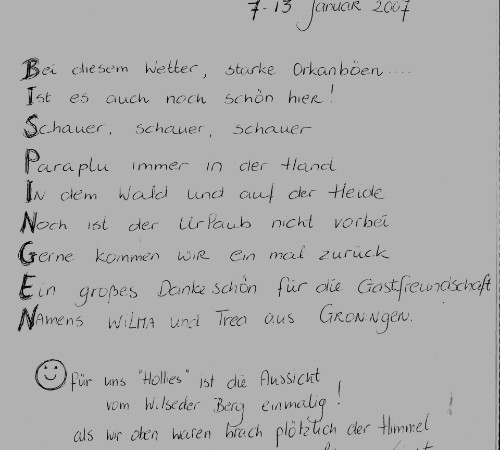 7-13 Januar 2007
Bei diesem Wetter, starke Orkanböen....
Ist es auch noch schön hier!
Schauer, schauer, schauer
Paraplu immer in der Hand
In dem Wald und auf der Heide
Noch ist der Urlaub nicht vorbei
Gerne kommen wir ein mal zurück
Ein großes Danke schön für die Gastfreundschaft
Namens Wilma und Trea aus Groningen.
für uns "Hollies" ist die Aussicht
vom Wilseder Berg einmalig!
als wir oben waren brach plötzlich der Himmel